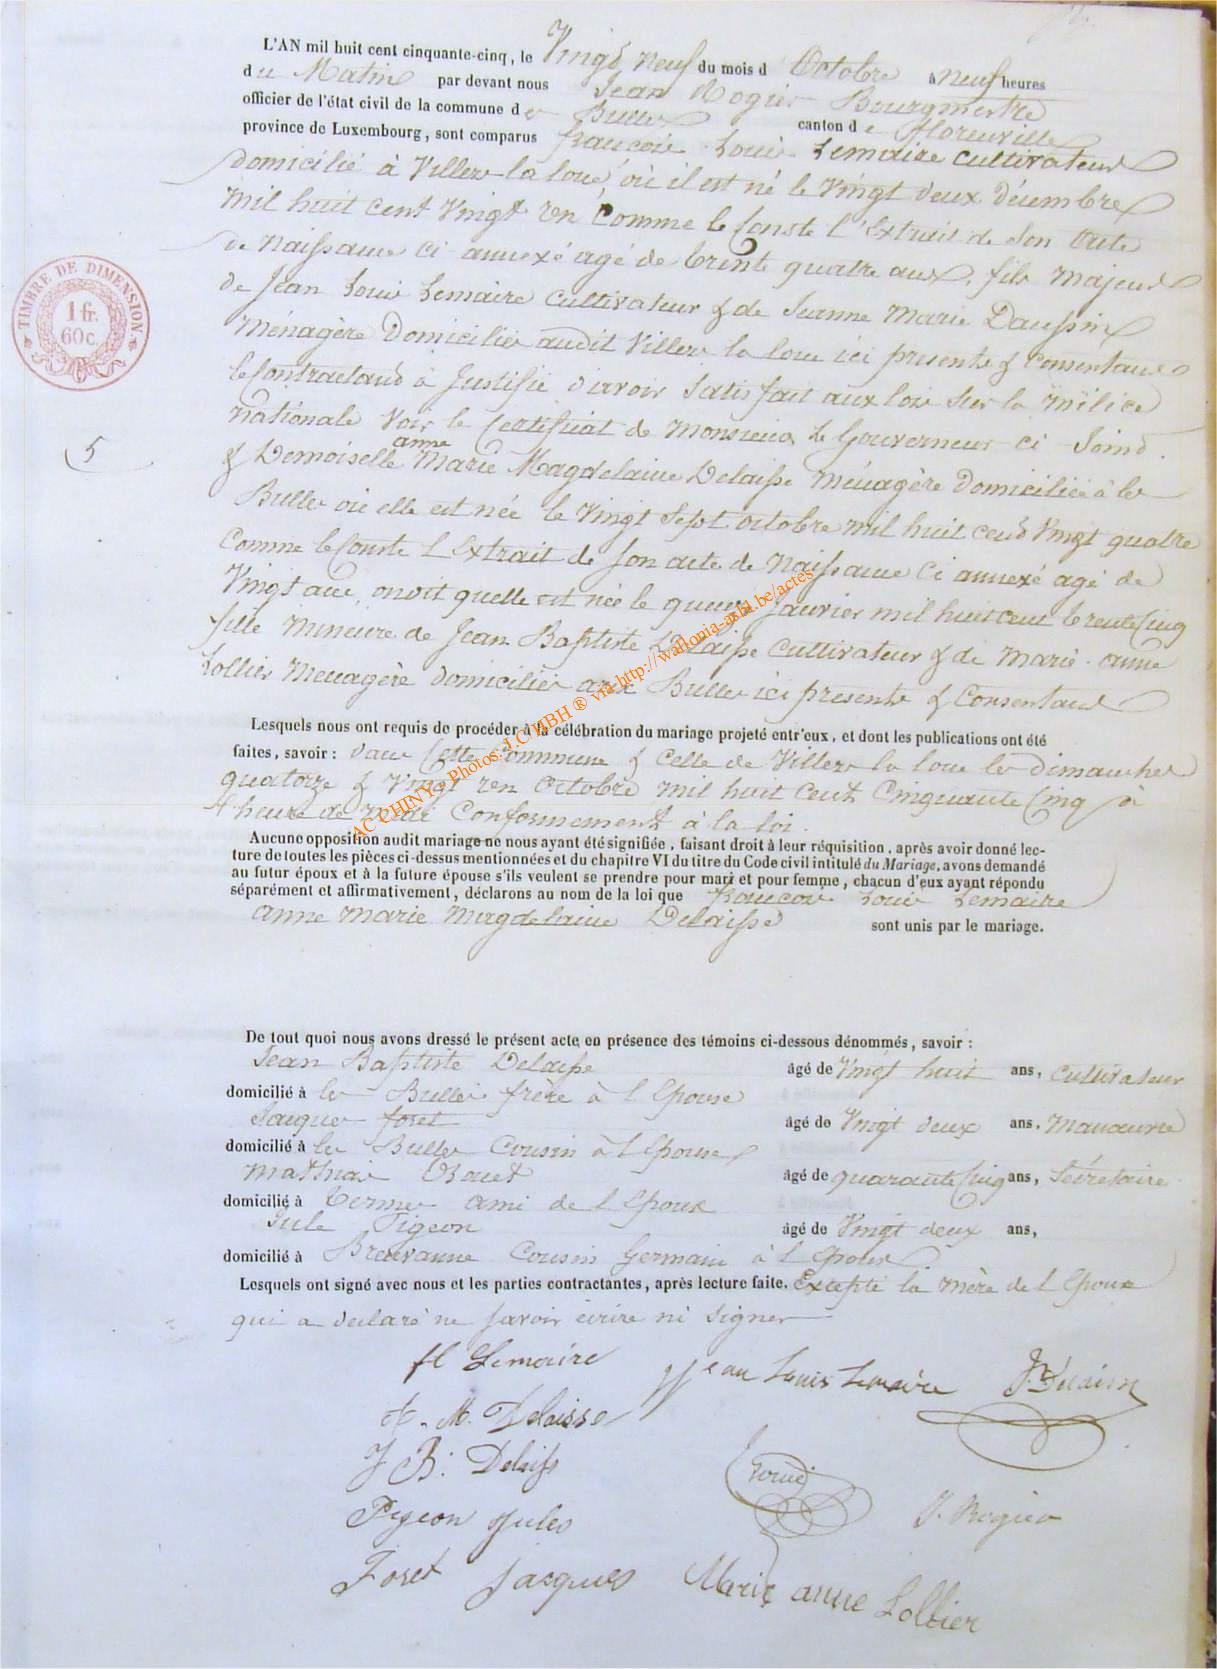 L'AN mil huit cent cinquante-cinq, le Vingt neuf du mois d Octobre à neuf heures
du Matin par devant nous Jean Rogier Bourgmestre
officier de l'état civil de la commune de Bulles canton de Florenville
province de Luxembourg, sont comparus francois Louis Lemaire cultivateur
domicilié à Villers la loue, où il est né le Vingt deux décembre
mil huit cent Vingt un Comme le Conste l'Extrait de son Acte
de Naissance ci annexé agé de trente quatre ans, fils majeur
de Jean Louis Lemaire Cultivateur & de Jeanne Marie Daussin
Ménagère Domiciliés audit Villers la loue ici presents & Consentans
le Contractand à Justifié d'avoir Satisfait aux lois sur la milice
nationale Voir le Certificat de Monsieur Le Gouverneur ci Joind.
5
anne
& Demoiselle Marie Magdelaine Delaisse Ménagère Domiciliée à les
Bulles où elle est née le Vingt Sept octobre mil huit cend Vingt quatre
Comme le Conste l Extrait de son acte de Naissance Ci annexé agé de
Vingt ans, quelle est née le Janvier mil huit cent trente Cinq
fille mineure de Jean Baptiste Delaisse Cultivateur & de Marie anne
Lollier Menagère domiciliés aux Bulles ici presents & Consentans
Lesquels nous ont requis de procéder à la célébration du mariage projeté entr'eux, et dont les publications ont été
faites, savoir : dans Cette Commune & Celle de Villers la loue les dimanches
quatorze & Vingt un Octobre mil huit Cent Cinquante Cinq à
heure de midi Conformement à la loi.
Aucune opposition audit mariage ne nous ayant été signifiée, faisant droit à leur réquisition, après avoir donné lec-
ture de toutes les pièces ci-dessus mentionnées et du chapitre VI du titre du Code civil intitulé du Mariage, avons demandé
au futur époux et à la future épouse s'ils veulent se prendre pour mari et pour femme, chacun d'eux ayant répondu
séparément et affirmativement, déclarons au nom de la loi que francois Louis Lemaire
Anne Marie Magdelaine Delaisse sont unis par le mariage.
De tout quoi nous avons dressé le présent acte en présence des témoins ci-dessous dénommés, savoir :
Jean Baptiste Delaisse âgé de Vingt huit ans, Cultivateur
domicilié à les Bulles frère à l Epouse
Jacques foret âgé de Vingt deux ans, Manœuvre
domicilié à les Bulles Cousin à l Epouse
âgé de quarante Cinq ans, Sécretaire
domicilié à Termes ami de l Epoux
Jule Pigeon âgé de Vingt deux ans,
domicilié à Breuvanne Cousin Germain à l Epoux
Lesquels ont signé avec nous et les parties contractantes, après lecture faite. Excepté la mère de l Epoux
qui a declaré ne savoir écrire ni signer
fl Lemaire
Jean Louis Lemaire
A. M. Delaisse
J B. Delaiss
Pigeon Jules
J. Rogier
Foret Jacques
Marie anne Lollier
TIMBRE DE DIMENSION.
1 fr.
60 c.
AC CHINY - Photos: J.C WBH ® via-http://wallonia-asbl.be/actes